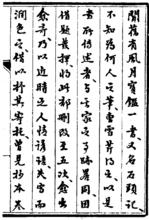 聞舊有風月寶鑑一書又名石頭記
不知為何人之筆曹雪芹得之以是
書所傳述者與其家之事跡略同因
借題發揮將此部刪改至五次愈出
愈奇乃以近時之人情諺語夾寫而
潤色之借以抒其寄托曾見抄本卷